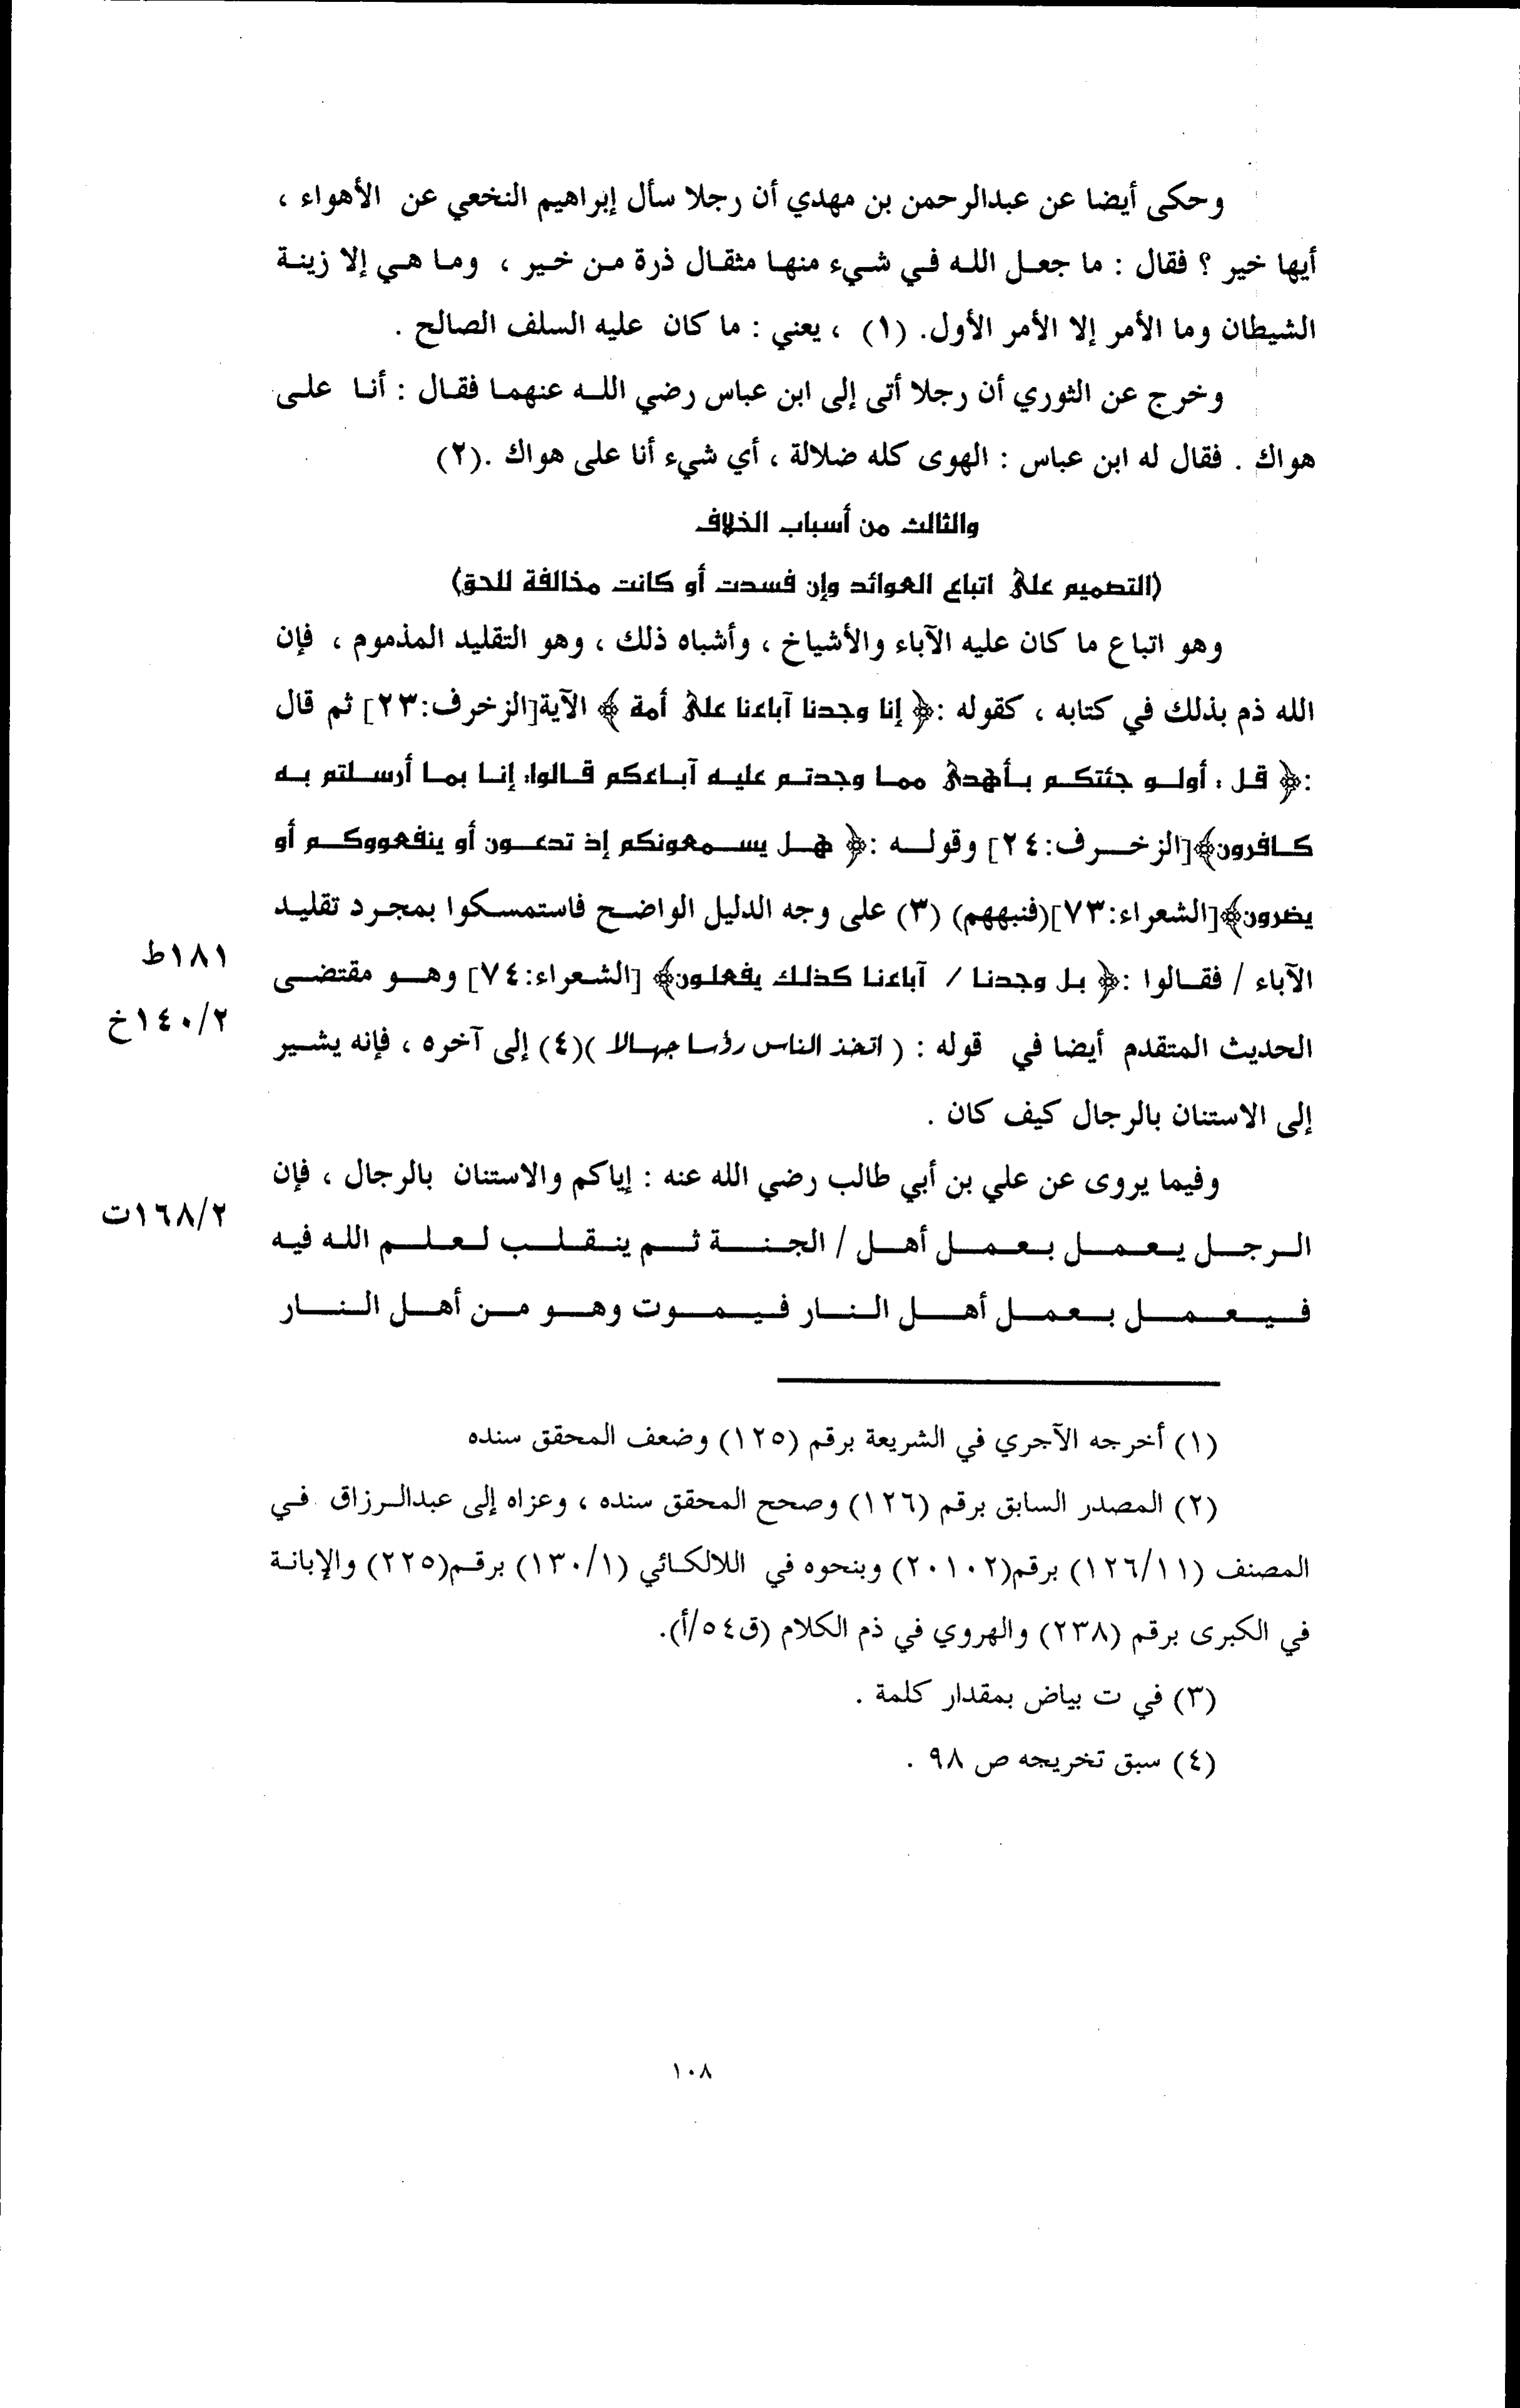 وحكى أيضا عن عبدالرحمن بن مهدي أن رجلا سأل إبراهيم النخعي عن الأهواء ،
أيها خير ؟ فقال : ما جعل الله في شيء منها مثقال ذرة من خير ، وما هي إلا زينة
الشيطان وما الأمر إلا الأمر الأول. (١) ، يعني : ما كان عليه السلف الصالح .
وخرج عن الثوري أن رجلا أتى إلى ابن عباس رضي الله عنهما فقال : أنا على
هواك . فقال له ابن عباس : الهوى كله ضلالة ، أي شيء أنا على هواك .(٢)
والثالث من أسباب الخلاف
(التصميم على اتباع العوائد وإن فسدت أو كانت مخالفة للحق)
وهو اتباع ما كان عليه الآباء والأشياخ ، وأشباه ذلك ، وهو التقليد المذموم ، فإن
الله ذم بذلك في كتابه ، كقوله :﴿ إنا وجدنا آباءنا على أمة ﴾ الآية[الزخرف:٢٣] ثم قال
:﴿ قل : أولو جئتكم بأهدى مما وجدتم عليه آباءكم قالوا: إنا بما أرسلتم به
كافرون﴾[الزخرف:٢٤] وقوله :﴿ هل يسمعونكم إذ تدعون أو ينفعووكم أو
يضرون﴾[الشعراء:٧٣](فنبههم) (٣) على وجه الدليل الواضح فاستمسكوا بمجرد تقليد
١٨١ط
الآباء / فقالوا :﴿ بل وجدنا / آباءنا كذلك يفعلون﴾ [الشعراء:٧٤] وهو مقتضى
١٤٠/٢خ
الحديث المتقدم أيضا في قوله : ( اتخذ الناس رؤسا جهالا )(٤) إلى آخره ، فإنه يشير
إلى الاستنان بالرجال كيف كان .
وفيما يروى عن علي بن أبي طالب رضي الله عنه : إياكم والاستنان بالرجال ، فإن
١٦٨/٢ت
الرجل يعمل بعمل أهل / الجنة ثم ينقلب لعلم الله فيه
فيعمل بعمل أهل النار فيموت وهو من أهل النار
(١) أخرجه الآجري في الشريعة برقم (١٢٥) وضعف المحقق سنده
(٢) المصدر السابق برقم (١٢٦) وصحح المحقق سنده ، وعزاه إلى عبدالرزاق في
المصنف (١٢٦/١١) برقم(٢٠١٠٢) وبنحوه في اللالكائي (١٣٠/١) برقم(٢٢٥) والإبانة
في الكبرى برقم (٢٣٨) والهروي في ذم الكلام (ق٥٤/أ).
(٣) في ت بياض بمقدار كلمة .
(٤) سبق تخريجه ص ٩٨ .
١٠٨